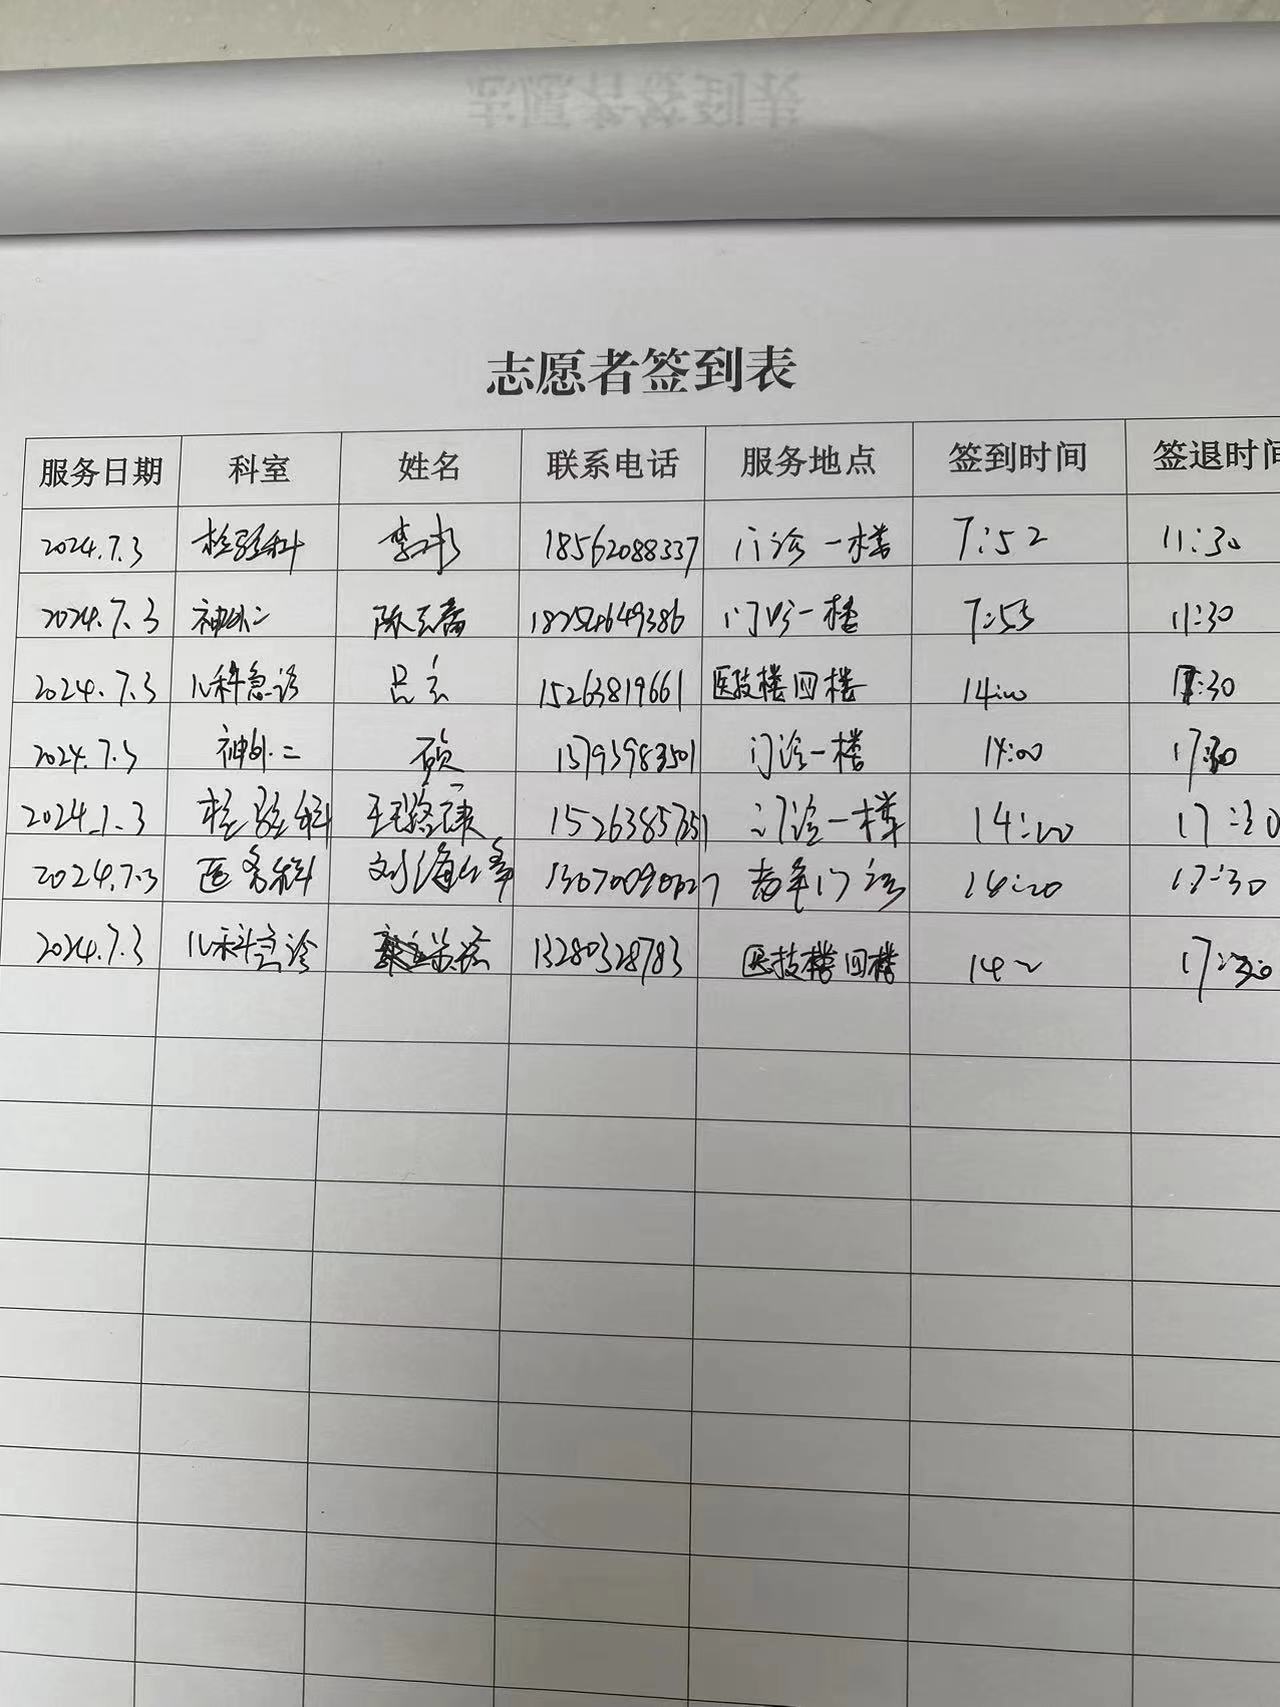 志愿者签到表
服务日期 科室 姓名 联系电话 服务地点 签到时间 签退时间
2024.7.3 检验科 李 18562088337 门诊一楼 7:52 11:30
2024.7.3 神外二 陈 18254649386 门诊一楼 7:55 11:30
2024.7.3 儿科急诊 吕 15263819661 医技楼四楼 14:00 17:30
2024.7.3 神外二 硕 13793983501 门诊一楼 14:00 17:30
2024.7.3 检验科 王 门诊一楼 14:00 17:30
2024.7.3 医务科 刘 老年门诊 14:00 17:30
2024.7.3 儿科急诊 13280328783 医技楼四楼 17:30